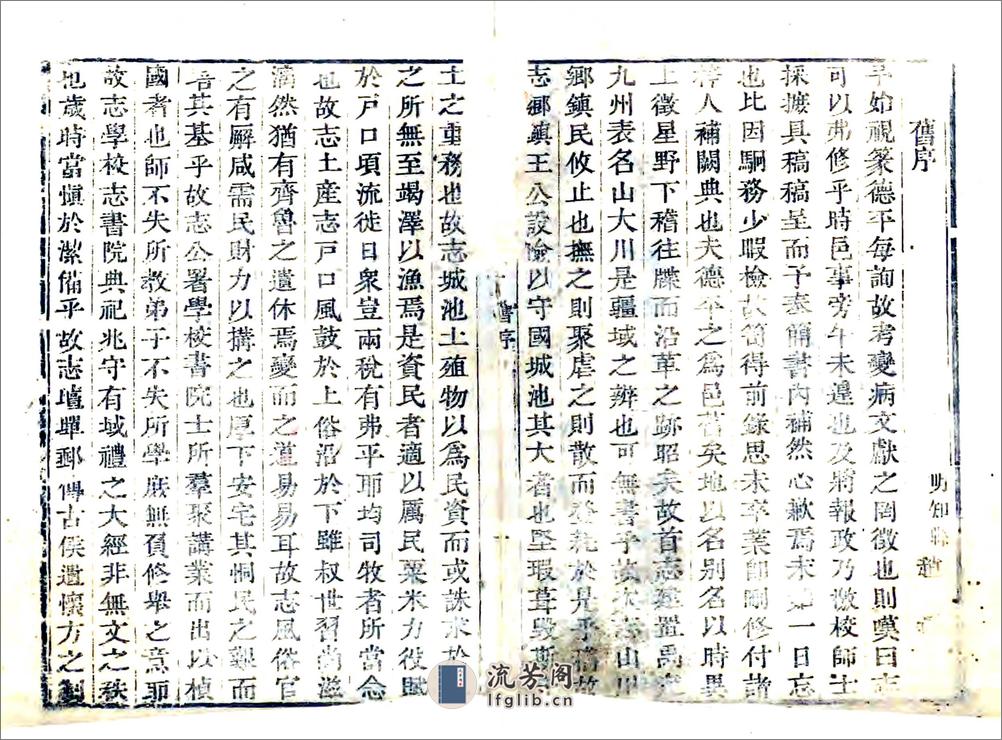 舊序
明知縣趙
予始視篆德平每詢故考變病文獻之罔徵也則嘆曰志
可以弗修乎時邑事旁午未遑也及將報政乃徵校師士
採摭具稿稿呈而予奏簡書內補然心歉焉未一日忘
也比因駉務少暇檢故笥得前錄思未卒業即刪修付諸
梓人補闕典也夫德平之爲邑舊矣地以名別名以時異
上徵星野下稽往牒而沿革之跡昭矣故首志建置禹定
九州表名山大川是疆域之辨也可無書乎故次志山川
鄉鎮民攸止也撫之則聚虐之則散而登耗於是乎稽故
志鄉鎮王公設險以守國城池其大者也堅瑕葺毀斯
土之重務也故志城池土殖物以爲民資而或誅求於
之所無至竭澤以漁焉是資民者適以厲民粟米力役賦
於戶口頃流徙日衆豈兩稅有弗平耶均司牧者所當念
也故志土產志戶口風鼓於上俗沿於下雖叔世習尚滋
漓然猶有齊魯之遺休焉變而之道易易耳故志風俗官
之有廨咸需民財力以搆之也厚下安宅其恫民之艱而
培其基乎故志公署學校書院士所羣聚講業而出以楨
國者也師不失所教弟子不失所學庶無負修舉之意耶
故志學校志書院典祀兆守有域禮之大經非無文之秩
祀歲時當愼於潔備乎故志壇墠郵傳古侯遺懷方之制
舊序
一
流芳阁
lfglib.cn